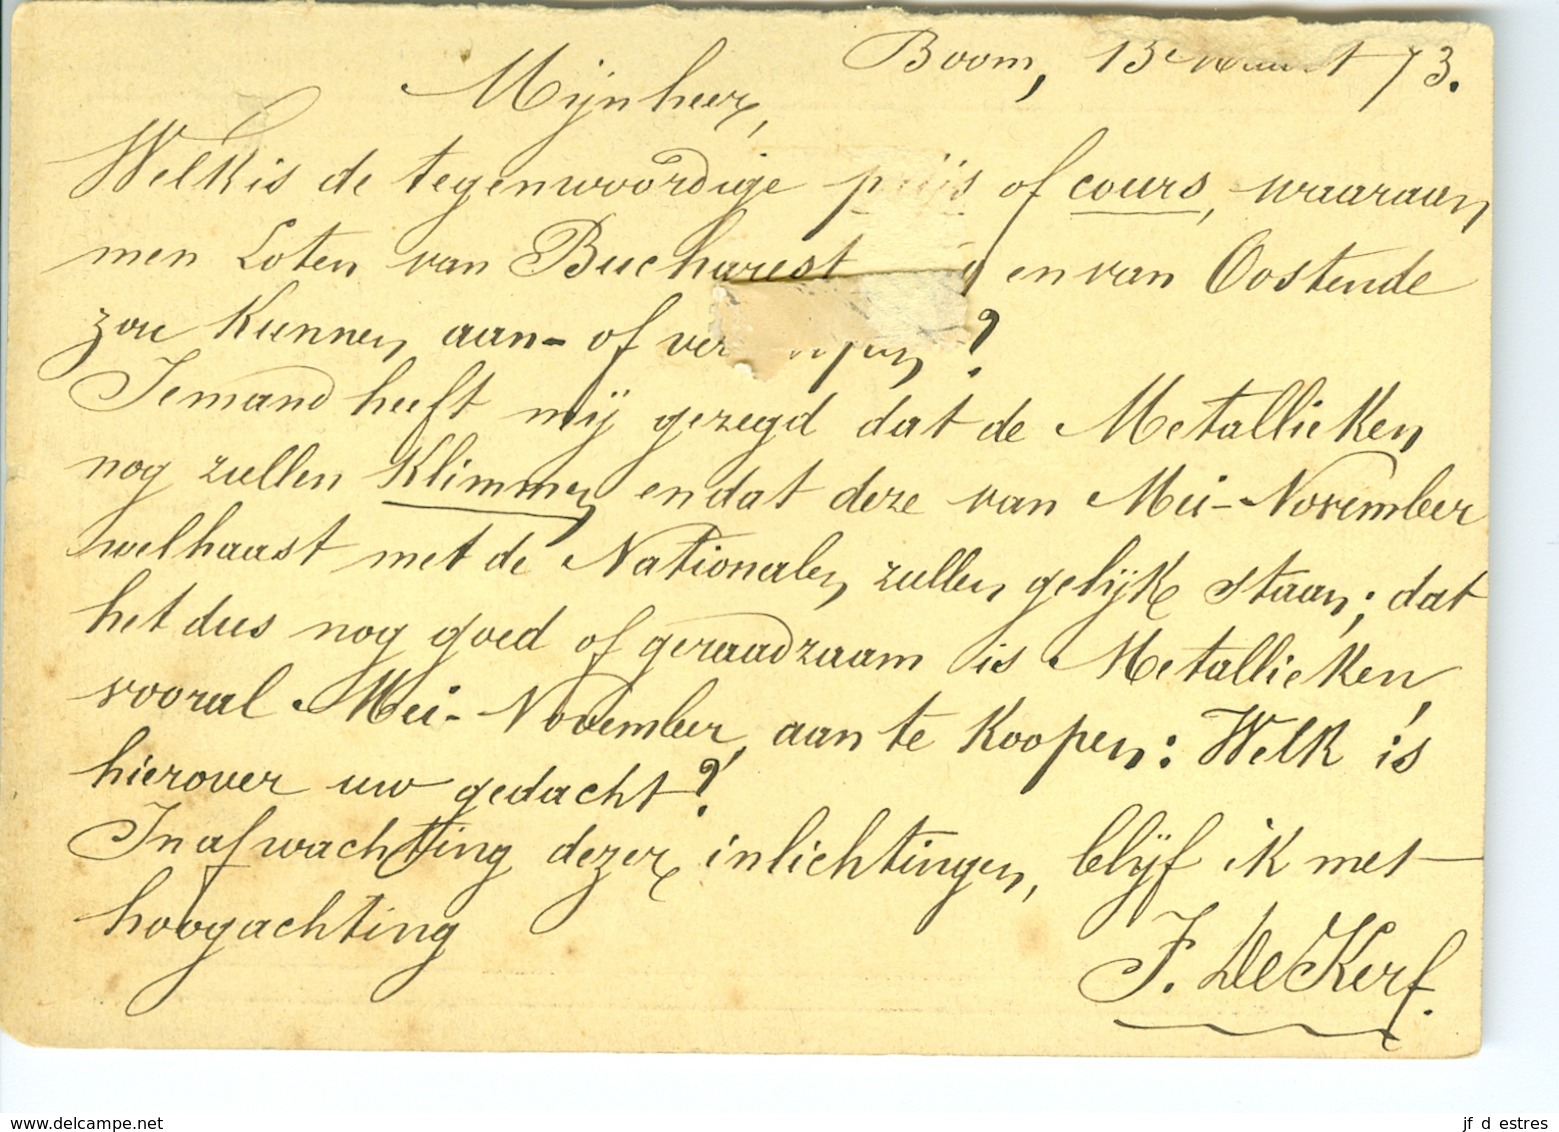 Boom, 13e Maart 73.
Mijnheer,
Welk is de tegenwoordige prijs of cours, waaraan
men Loten van Bucharest en van Oostende
zou kunnen aan- of verkoopen?
Iemand heeft mij gezegd dat de Metallieken
nog zullen klimmen en dat deze van Mei-November
welhaast met de Nationalen zullen gelijk staan; dat
het dus nog goed of geraadzaam is Metallieken,
vooral Mei-November, aan te koopen: Welk is
hierover uw gedacht?
In afwachting dezer inlichtingen, blijf ik met
hoogachting
J. De Kerf.
www.delcampe.net
jf d estres